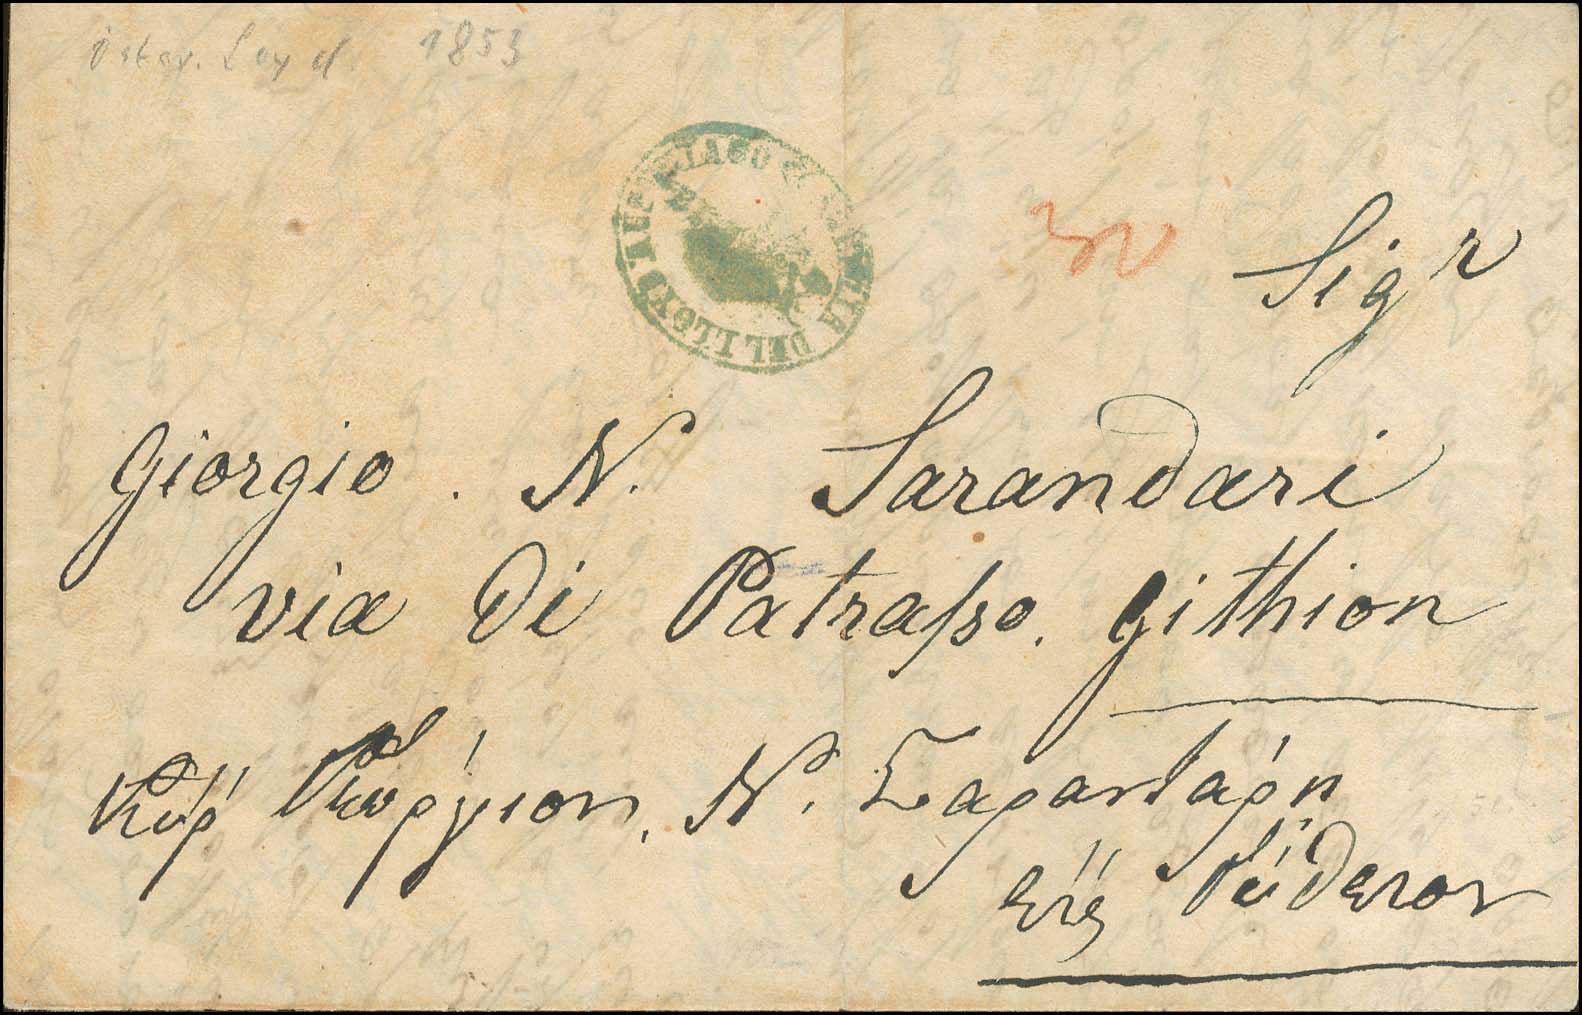 Öster. Loyd. 1853
AGENZIA DEL LLOYD AUSTRIACO
30
Sigr
Giorgio. N. Sarandari
via di Patrasso. Githion
Κύρ Γεώργιον, Ν. Σαραντάρη
εἰς Γύθειον